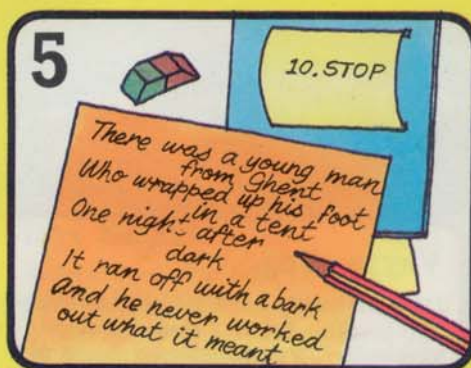 5
10. STOP
There was a young man
from Ghent
Who wrapped up his foot
in a tent
One night after
dark
It ran off with a bark
And he never worked
out what it meant